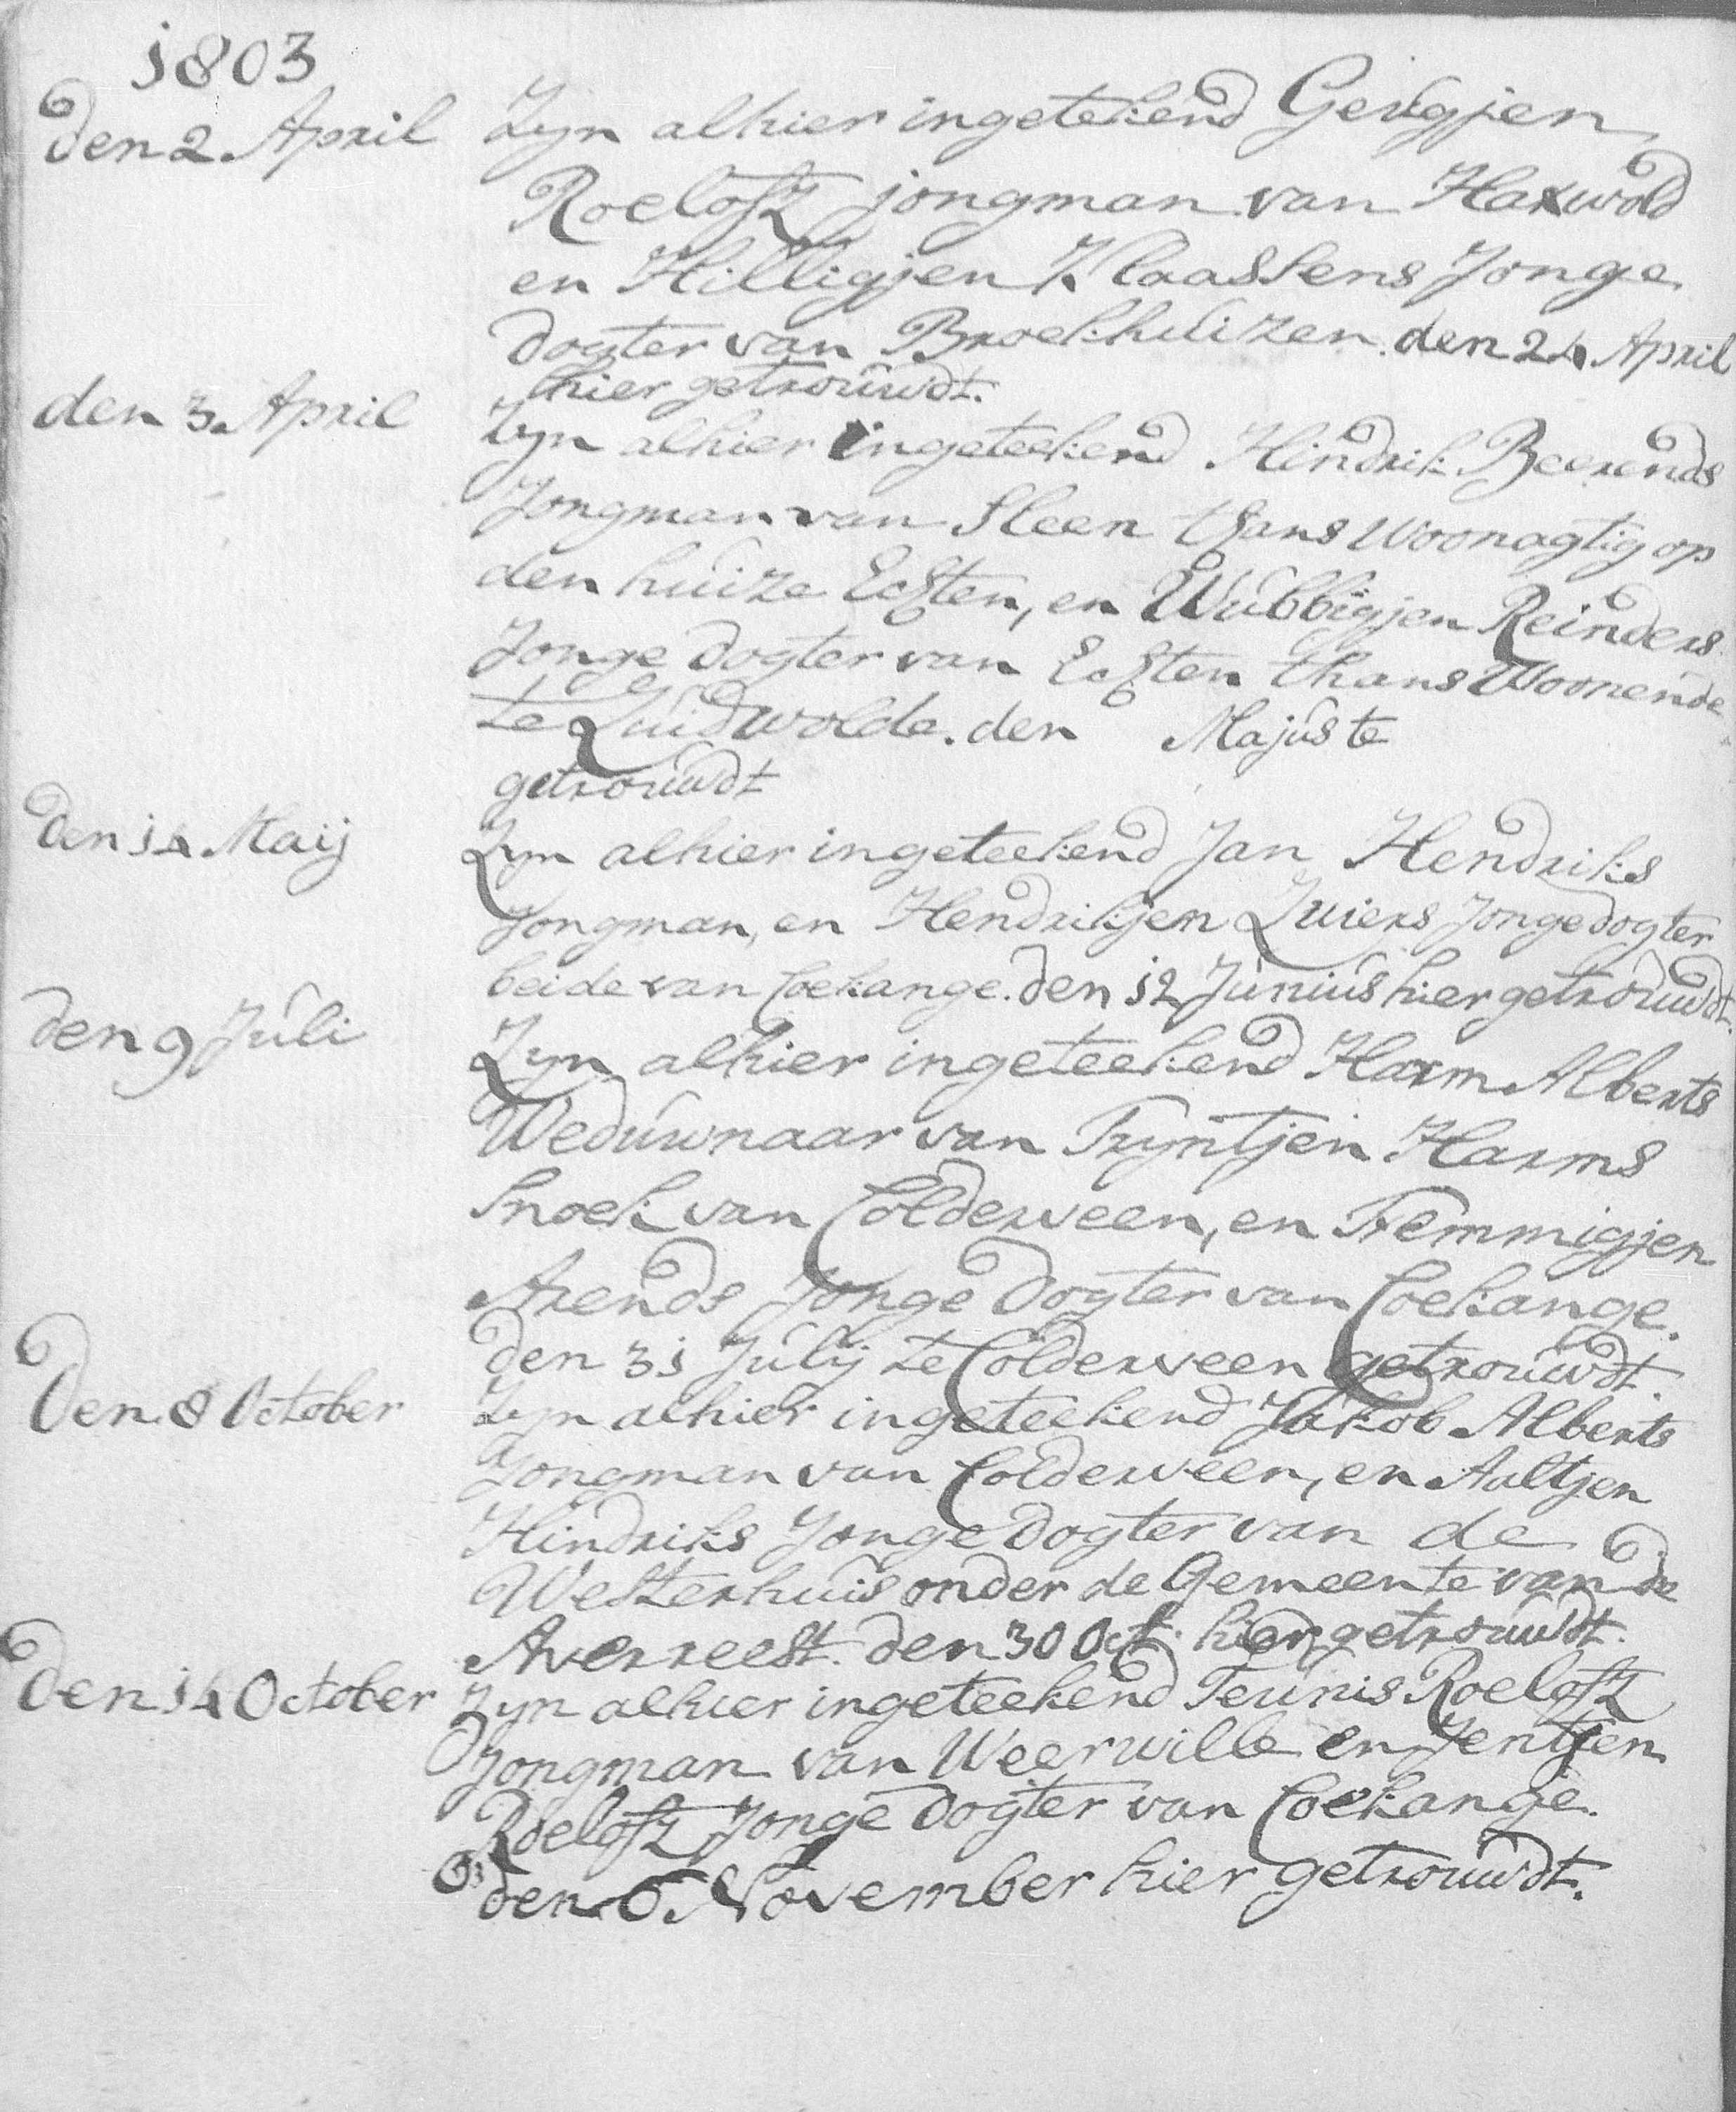 1803
den 2 April Zyn alhier ingetekend Geugjen
Roelofsz jongman van Haxwold
en Hilligjen Klaassens Jonge
dogter van Broekhuizen. den 24 April
hier getrouwdt.
den 3 April Zyn alhier ingeteekend Hindrik Beerends
Jongman van Sleen thans Woonagtig op
den huize Echten, en Wubbigjen Reinders
Jonge dogter van Echten thans Woonende
te Zuidwolde. den Majus te
getrouwdt
den 14 Maij Zyn alhier ingeteekend Jan Hendriks
Jongman, en Hendrikjen Zuiers Jonge dogter
beide van Coekange. den 12 Junius hier getrouwdt.
den 9 Juli Zyn alhier ingeteekend Harm Alberts
Weduwnaar van Tryntjen Harms
Snoek van Colderveen, en Femmigjen
Arends Jonge dogter van Coekange.
den 31 July te Colderveen getrouwdt.
Den 8 October Zyn alhier ingeteekend Jakob Alberts
Jongman van Colderveen, en Aaltjen
Hindriks Jonge dogter van de
Westerhuis onder de Gemeente van de
Averreest. den 30 Oct. hier getrouwdt.
Den 14 October Zyn alhier ingeteekend Teunis Roelofsz
Jongman van Weerwille en Jentjen
Roelofsz Jonge dogter van Coekange.
den 6 November hier getrouwdt.